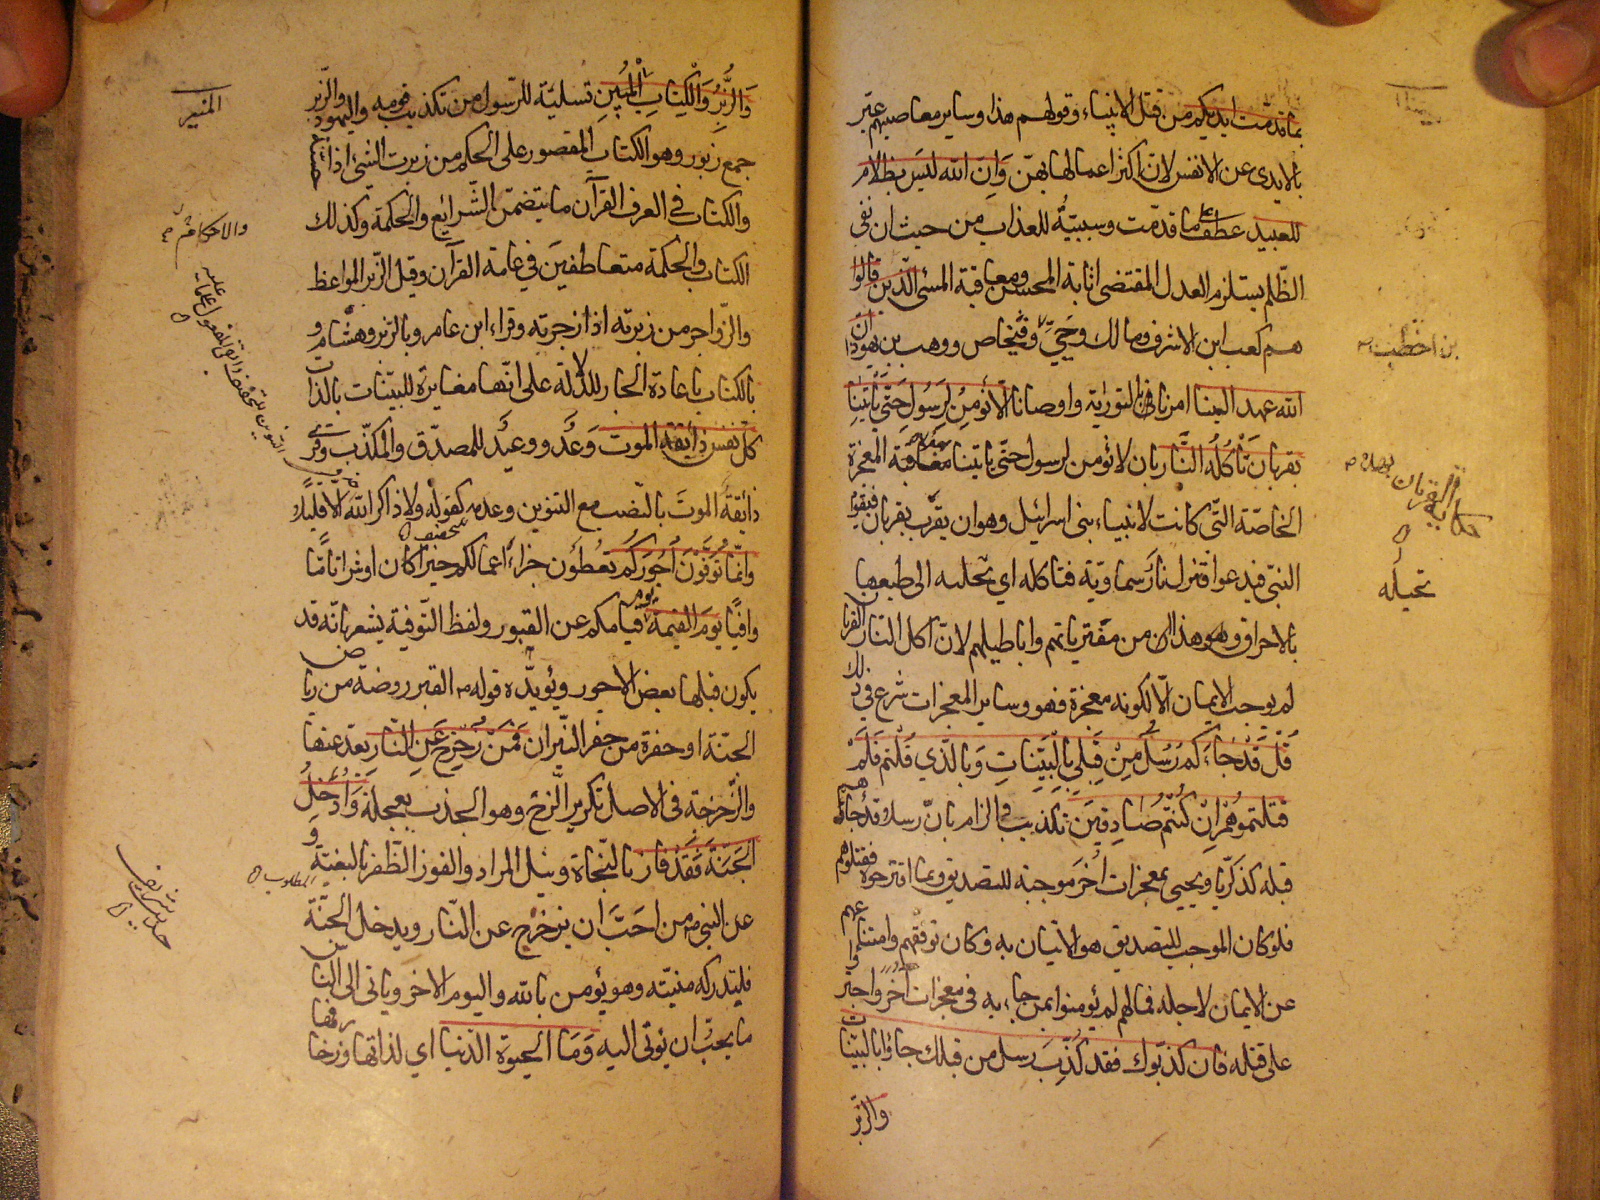 بما قدمت ايديكم من قتل الانبياء وقولهم هذا وساير معاصيهم عبّر
بالايدى عن الانفس لانّ اكثر اعمالها بهنّ وَاَنَّ الله لَيسَ بظلام
للعبيد عطف على ما قدّمت وسببيّته للعذاب من حيث ان نفى
الظّلم يستلزم العدل المقتضى اثابة المحسن ومعاقبة المسئ الّذين قالوا
هم كعب ابن الاشرف ومالك وحَيىّ وفنحاص ووهب بن يهودا انّ
الله عهد الينا امرنا فى التورٰية واوصانا الّا نؤمِنَ لِرَسُولٍ حَتّى يَأتينا
بقربان تَأكُلُه النَّار بان لا نؤمن لرسول حتّى ياتينا بهذه المعجزة
الخاصّة التّى كانت لانبياء بنى اسرائيل وهو ان يقرّب بقربان فيقوم
النبّى فيدعوا فتنزل نار سماويّة فتاكله اي تحليه الى طبعها
بالاحراق وهذا من مفتريٰاتهم واباطيلهم لانّ اكل النّار القربان
لم يوجب الايمان الّا لكونه معجزة فهو وساير المعجزات شرع فى ذلك
قُل قَدْ جَاءَكُم رُسُلٌ مِنْ قَبلِى بِالبَيّنَاتِ وَبالّذي قُلتم فَلِمَ
قتلتموهُم اِنْ كُنْتُم صَادِقينَ تكذيب والزام بانّ رسلا قد جاؤهم
قبله كذكريّا ويحيى بمعجزات اُخَر موجبة للتصديق وبما اقترحوه فقتلوهم
فلو كان الموجب للتصديق هو الاتيان به وكان توقّفهم وامتناعهم
عن الايمان لاجله فما لهم لم يؤمنوا بمن جاء به فى معجزات اُخَر واجترؤا
على قتله فان كذّبوك فقد كُذّبَ رسل من قبلك جاؤا بالبيّنات
والزّبر
بن اخطب
حكاية القربان
تحيله
وَالزُّبُرِ وَالْكِتابِ الْمُنيرِ تسلية للرّسول من تكذيب قومه واليهود والزّبر
جمع زبور وهو الكتاب المقصور على الحكم من زبرت الشئ اذا حبسته
والكتاب فى العرف القرآن ما يتضمّن الشّرايع والحكمة وكذلك
الكتاب والحكمة متعاطفين فى عامة القرآن وقيل الزّبر المواعظ
والزّواجر من زبرته اذا زجرته وقراء ابن عامر وبالزبر وهشام و
بالكتاب باعادة الجار للدّلالة على انّها مغايرة للبيّنات بالذات
كلّ نفس ذائقة الموت وَعْدٌ ووعيدٌ للمصدّق والمكذّب وقرئ
ذائقةٌ الموتَ بالنّصب مع التنوين وعدمه كقوله ولا ذاكر الله الّا قليلا
وانّما تُوَفّونَ اُجُورَكُم تُعطَون جزاء اعمالكم خيرا كان او شرا تامّا
وافيًا يَومَ القيٰمة يوم قيامكم عن القبور ولفظ التّوفية يشعر بانّه قد
يكون قبلها بعض الاجور ويؤيّده قوله ص القبر روضة من رياض
الجنّة او حفرة من حفر النّيران فَمَنْ زُحزِحَ عَنِ النّار بعّد عنها
والزّحزحة فى الاصل تكرير الزّح وهو الجذب بعجلة وَاُدْخِلَ
الجَنّةَ فَقَدْ فاز بالنّجاة ونيل المراد والفوز الظّفر بالبغية و
عن النبىّ ص من احَبّ ان يزحزح عن النّار ويدخل الجنّة
فليتدركه منيّته وهو يؤمن بالله واليوم الاخر وياتى الى النّاس
ما يحبّ ان يؤتى اليه وَمَا الحيوة الدّنيا اي لذاتها وزخارفها
المنير
والاحكام
المطلوب
حديث شريف